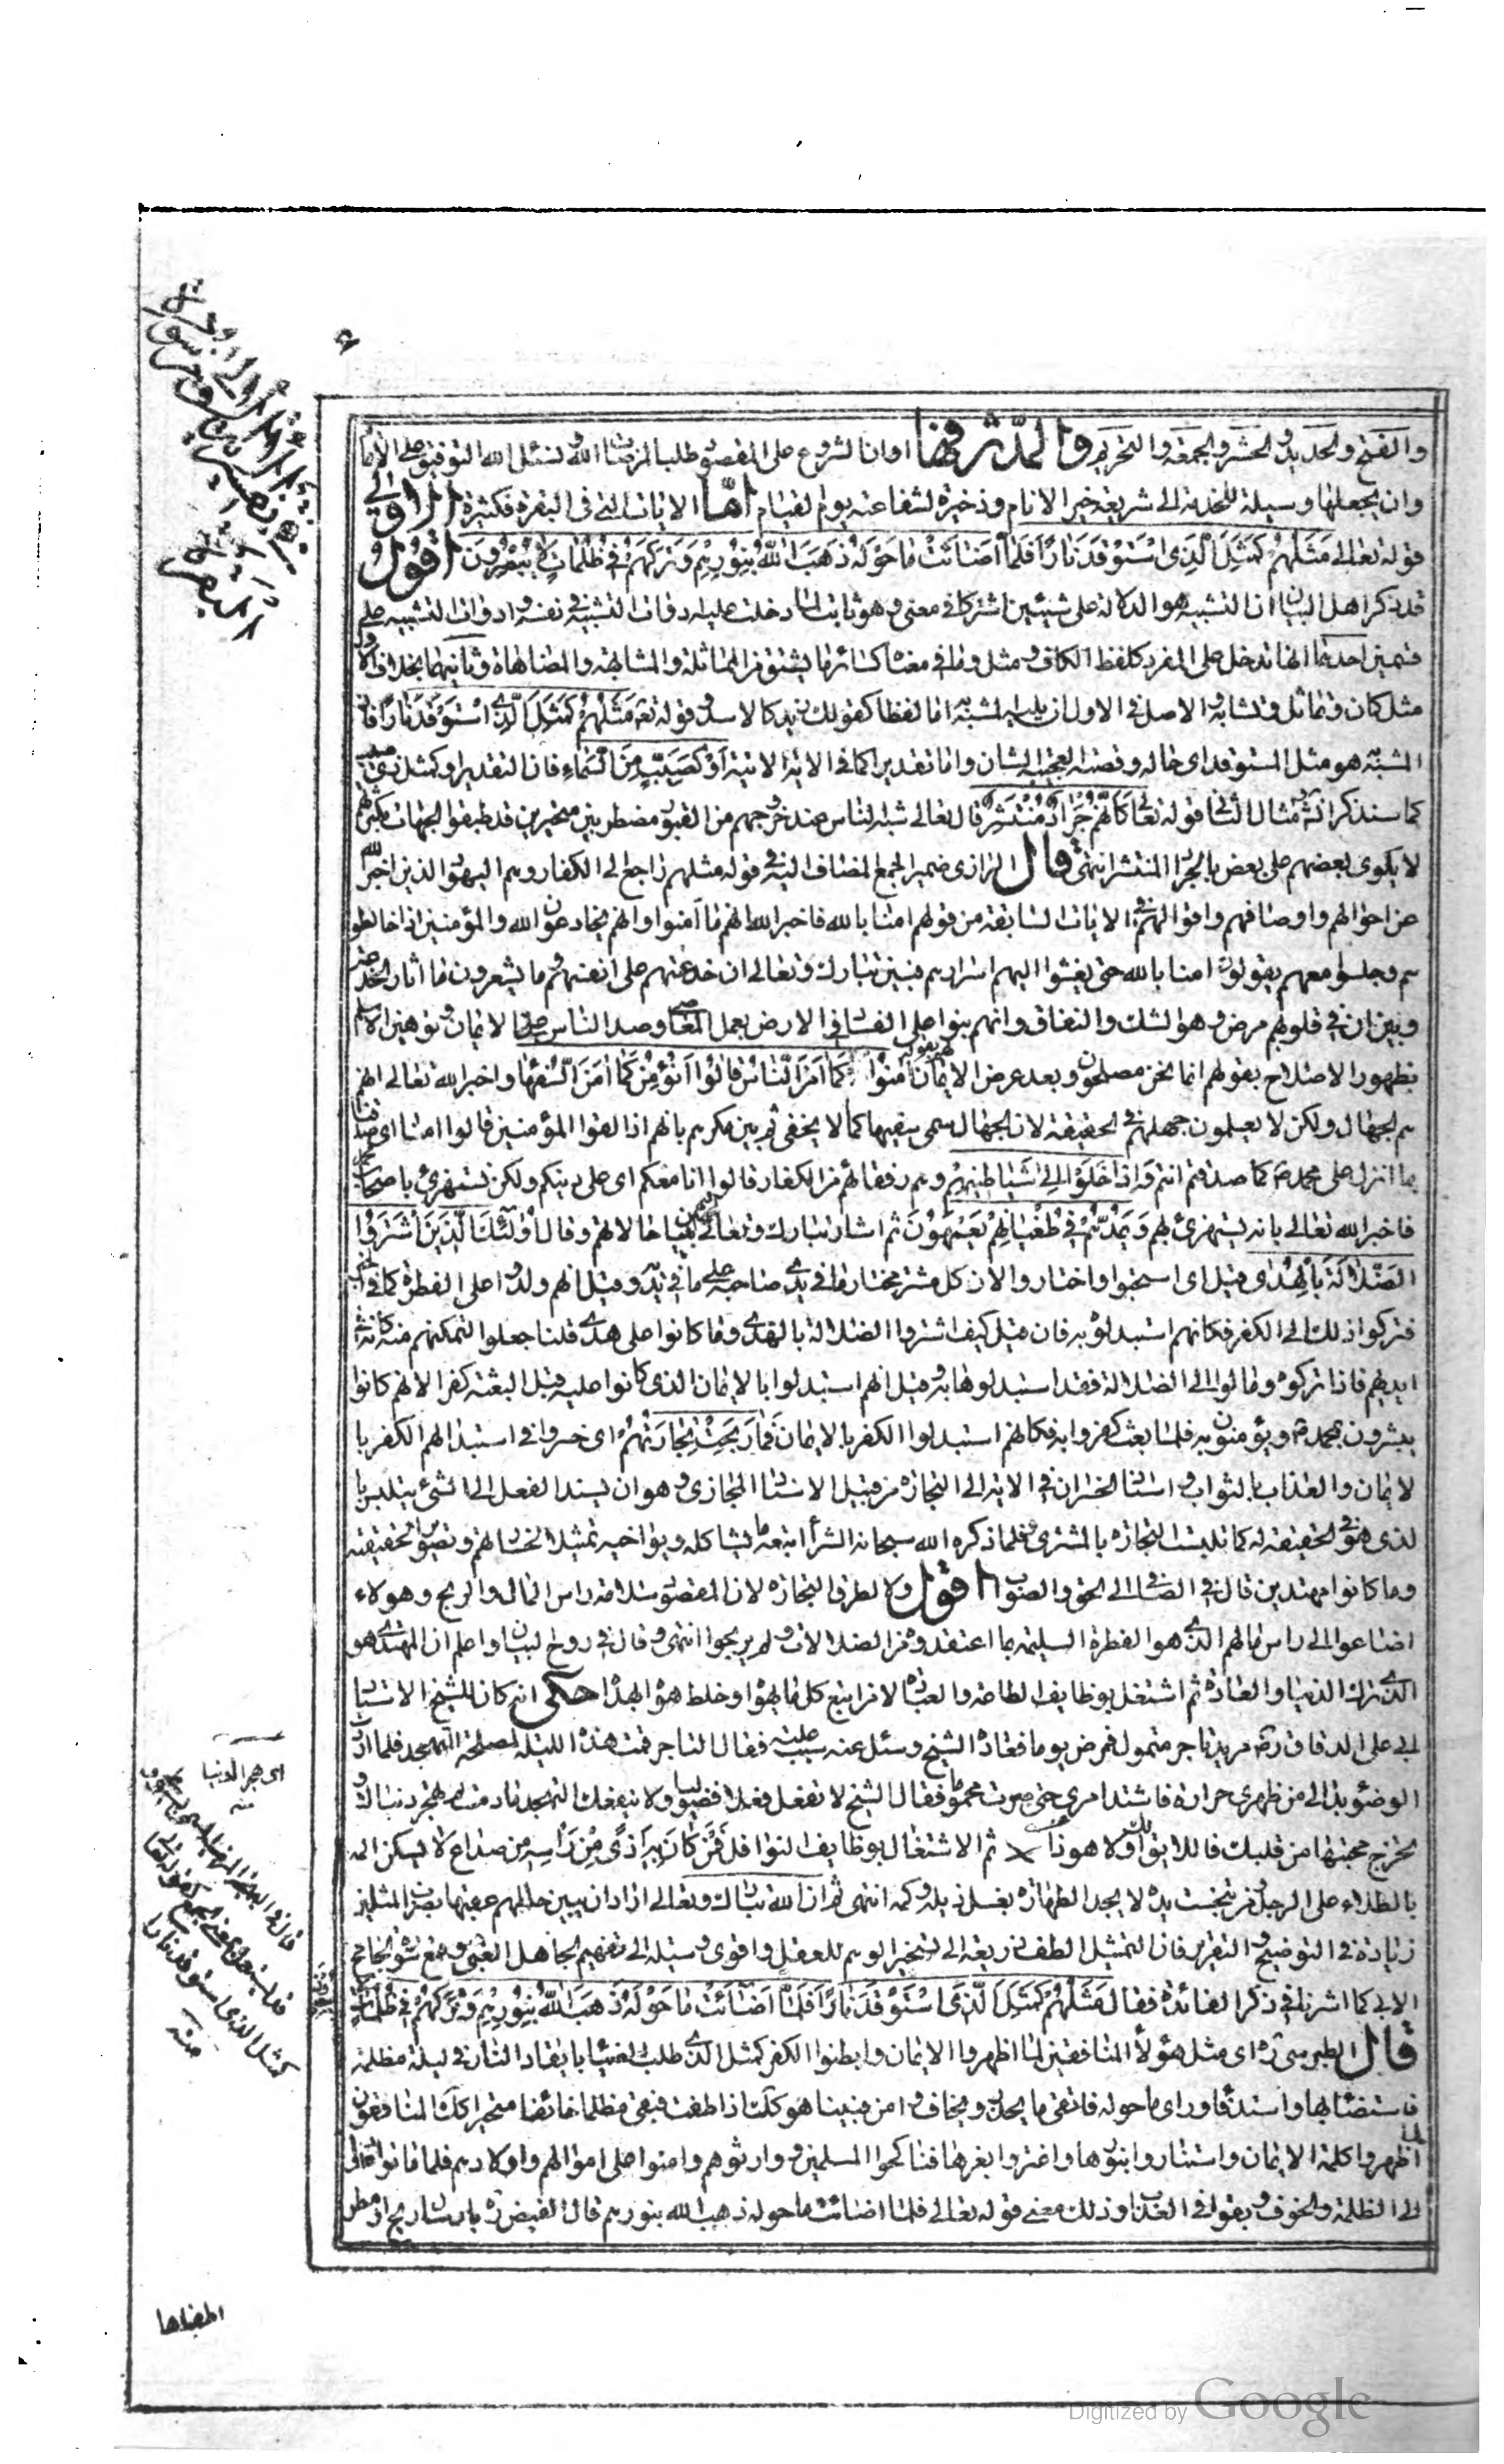 والفتح والحديد والحشر والجمعة والتحريم والمدثر فهنا اوان الشروع على المقصود طلبا لمرضات الله ونسئل الله التوفيق على الاتمام
وان يجعلها وسيلة للخدمة الى شريعة خير الانام وذخيرة لشفاعته يوم القيام اما الايات التى فى البقرة فكثيرة الاولى
قوله تعالى مَثَلُهُمْ كَمَثَلِ الَّذِى اسْتَوْقَدَ نَارًا فَلَمَّا اَضَائَتْ مَا حَوْلَهُ ذَهَبَ اللّٰهُ بِنُورِهِمْ وَتَرَكَهُمْ فِى ظُلُمَاتٍ لَا يُبْصِرُونَ اقول
قد ذكر اهل البيان ان التشبيه هو الدلالة على شيئين اشتركا فى معنى وهو ثابت لما دخلت عليه ادوات التشبيه فى نفسه وادوات التشبيه على
قسمين احدهما انها تدخل على المفرد كلفظ الكاف ومثل وما فى معناه كسائر ما يشتق من المماثلة والمشابهة والمضاهاة وثانيهما بخلاف الاول
مثل كان وتماثل وتشابه والاصل فى الاول ان يليه المشبه به اما لفظا كقولك زيد كالاسد وقوله تعم مَثَلُهُمْ كَمَثَلِ الَّذِى اسْتَوْقَدَ نَارًا فان
المشبه هو مثل المستوقد اى حاله وقصته العجيبة الشان واما تقديرا كما فى الاية الاتية اَوْ كَصَيِّبٍ مِنَ السَّمَاءِ فان التقدير او كمثل ذوى صيب
كما سنذكر انش مثال الثانى قوله تعالى كَاَنَّهُمْ جَرَادٌ مُنْتَشِرٌ قال تعالى شبه الناس عند خروجهم من القبور مضطربين متحيرين قد طبقوا الجهات بكثرتهم
لا يلوى بعضهم على بعض بالجراد المنتشر انتهى قال الرازى ضمير الجمع المضاف اليه فى قوله مثلهم راجع الى الكفار وهم اليهود الذين اخبر الله
عن احوالهم واوصافهم واقوالهم فى الايات السابقة من قولهم امنا بالله فاخبر الله انهم ما آمنوا وانهم يخادعون الله والمؤمنين اذا خالطو
هم وجلسوا معهم يقولون امنا بالله حتى يفشوا اليهم اسرارهم فبين تبارك وتعالى ان خدعتهم على انفسهم وما يشعرون ما اثار الخدعة
وبين ان فى قلوبهم مرض وهو الشك والنفاق وانهم بنوا على الفساد فى الارض بعمل المعاصى وصد الناس على الايمان وتوهين الاسلام
بظهور الاصلاح بقولهم انما نحن مصلحون وبعد عرض الايمان لهم بقوله آمِنُوا كَمَا اٰمَنَ النَّاسُ قَالُوا اَنُؤْمِنُ كَمَا اٰمَنَ السُّفَهَاءُ واخبر الله تعالى انهم
هم الجهال ولكن لا يعلمون جهلهم فى الحقيقة لان الجهال سمى سفيها كما لا يخفى ثم بين مكرهم بانهم اذا لقوا المؤمنين قالوا امنا اى صدقنا
بما انزل على محمد ص كما صدقتم انتم وَاِذَا خَلَوْا اِلٰى شَيَاطِينِهِمْ وهم رفقائهم من الكفار قالوا انا معكم اى على دينكم ولكن نستهزئ باصحاب محمد
فاخبر الله تعالى بانه يستهزئ بهم وَيَمُدُّهُمْ فِى طُغْيَانِهِمْ يَعْمَهُونَ ثم اشار تبارك وتعالى حالاتهم وقال اُولٰئِكَ الَّذِينَ اشْتَرَوُا
الضَّلَالَةَ بِالْهُدٰى وقيل اى استحبوا واختاروا لان كل مشتر مختار ما فى يدى صاحبه على ما فى يده وقيل انهم ولدوا على الفطرة كما فى الخبر
فتركوا ذلك الى الكفر فكانهم استبدلوه به فان قيل كيف اشتروا الضلالة بالهدى وما كانوا على هدى قلنا جعلوا لتمكنهم منه كانه فى
ايديهم فاذا تركوه ومالوا الى الضلالة فقد استبدلوها به وقيل انهم استبدلوا بالايمان الذى كانوا عليه قبل البعثة كفرا لانهم كانوا
يبشرون بمحمد ص ويؤمنون به فلما بعث كفروا به فكانهم استبدلوا الكفر بالايمان فَمَا رَبِحَتْ تِجَارَتُهُمْ اى خسروا فى استبدالهم الكفر با
لايمان والعذاب بالثواب واسناد الخسران فى الاية الى التجارة من قبيل الاسناد المجازى وهو ان يسند الفعل الى شئ يتلبس با
لذى هو فى الحقيقة له كما تلبست التجارة بالمشترى فلما ذكره الله سبحانه الشرآ اتبعه ما يشاكله ويواخيه تمثيلا لخسارهم وتصويرا لحقيقته
وما كانوا مهتدين قال فى الصافى الى الحق والصواب اقول ولا لطرق التجارة لان المقصود سلامة راس المال والربح وهولاء
اضاعوا الى راس مالهم الذى هو الفطرة السليمة بما اعتقدوه من الضلالات ولم يربحوا انتهى وقال فى روح البيان واعلم ان المهتدى هو
الذى ترك الدنيا والعادة ثم اشتغل بوظايف الطاعة والعبادة لا من اتبع كل ما يهواه وخلط هواه بهداه حكى انه كان للشيخ الاستاد
ابى على الدقاق ره مريد تاجر متمول فمرض يوما فعاده الشيخ وسئل عنه سبب علته فقال التاجر قمت هذه الليلة لمصلحة التهجد فلما اردت
الوضؤ بدا لى من ظهرى حرارة فاشتد امرى حتى صرت محموما فقال الشيخ لا تفعل فعلا فضوليا ولا ينفعك التهجد ما دمت لم تهجر دنياك و
تخرج محبتها من قلبك فاللايق لك اولا هو ذاك ثم الاشتغال بوظايف النوافل فَمَنْ كَانَ بِهِ اَذًى مِنْ رَاْسِهِ من صداع لا يسكن المه
بالطلاء على الرجل ومن تنجست يده لا يجد الطهارة بغسل ذيله وكمه انتهى ثم ان الله تبارك وتعالى اراد ان يبين حالهم عقيبها بضرب المثل
زيادة فى التوضيح والتقرير فان التمثيل الطف ذريعة الى تسخير الوهم للعقل واقوى وسيلة الى تفهيم الجاهل الغبى وقمع سورة الجامح
الابى كما اشرنا فى ذكر الفائدة فقال مَثَلُهُمْ كَمَثَلِ الَّذِى اسْتَوْقَدَ نَارًا فَلَمَّا اَضَائَتْ مَا حَوْلَهُ ذَهَبَ اللّٰهُ بِنُورِهِمْ وَتَرَكَهُمْ فِى ظُلُمَاتٍ
قال الطبرسى ره اى مثل هؤلآء المنافقين لما اظهروا الايمان وابطنوا الكفر كمثل الذى طلب الضياء بايقاد النار فى ليلة مظلمة
فاستضاء بها واستدفأ وراى ما حوله فاتقى ما يحذر ويخاف وامن فبينا هو كذلك اذ اطفئت فبقى مظلما خائفا متحيرا كذلك المنافقون
لما اظهروا كلمة الايمان واستناروا بنورها واغتروا بعزها فناكحوا المسلمين و وارثوهم وامنوا على اموالهم واولادهم فلما ماتوا عادوا
الى الظلمة والخوف وبقوا فى العذاب وذلك معنى قوله تعالى فلما اضائت ما حوله ذهب الله بنورهم قال الفيض ره بارسال ريح او مطر
اى هجر الدنيا
منه
كمثل الذى استوقد نارا
منه
اطفاها
Digitized by Google